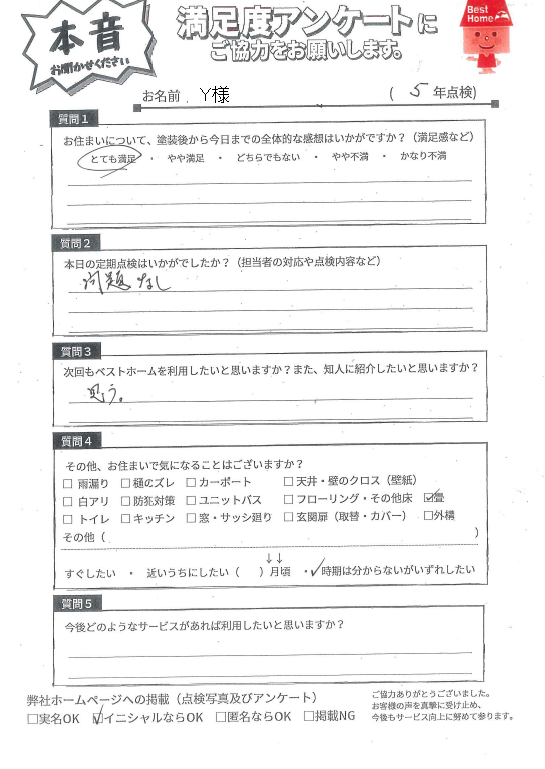 本音
お聞かせください
満足度アンケートに
ご協力をお願いします。
Best Home
お名前 Y様 ( 5 年点検)
質問1
お住まいについて、塗装後から今日までの全体的な感想はいかがですか？（満足感など）
とても満足 ・ やや満足 ・ どちらでもない ・ やや不満 ・ かなり不満
質問2
本日の定期点検はいかがでしたか？（担当者の対応や点検内容など）
問題なし
質問3
次回もベストホームを利用したいと思いますか？また、知人に紹介したいと思いますか？
思う。
質問4
その他、お住まいで気になることはございますか？
□ 雨漏り □ 樋のズレ □ カーポート □ 天井・壁のクロス（壁紙）
□ 白アリ □ 防犯対策 □ ユニットバス □ フローリング・その他床 ☑畳
□ トイレ □ キッチン □ 窓・サッシ廻り □ 玄関扉（取替・カバー） □外構
その他（ ）
↓↓
すぐしたい ・ 近いうちにしたい（ ）月頃 ・✓時期は分からないがいずれしたい
質問5
今後どのようなサービスがあれば利用したいと思いますか？
弊社ホームページへの掲載（点検写真及びアンケート）
□実名OK ☑イニシャルならOK □匿名ならOK □掲載NG
ご協力ありがとうございました。
お客様の声を真摯に受け止め、
今後もサービス向上に努めて参ります。